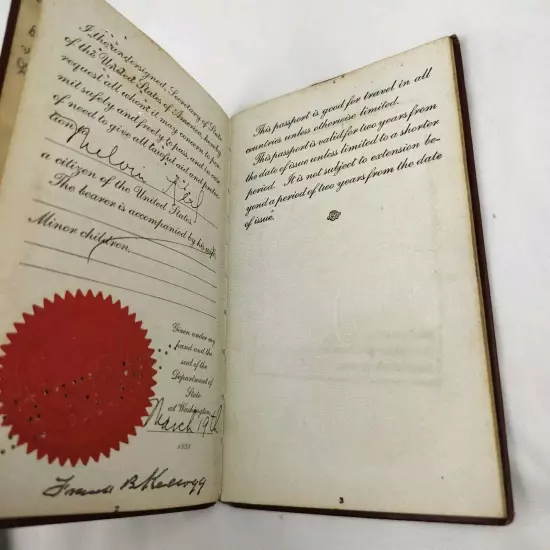 I, the undersigned, Secretary of State
of the United States of America, hereby
request all whom it may concern to per-
mit safely and freely to pass, and in case
of need to give all lawful aid and protec-
tion to
a citizen of the United States.
The bearer is accompanied by his wife,
Minor children,
Given under my
hand and the
seal of the
Department of
State
at Washington,
March 19th
Frank B. Kellogg
2
This passport is good for travel in all
countries unless otherwise limited.
This passport is valid for two years from
the date of issue unless limited to a shorter
period. It is not subject to extension be-
yond a period of two years from the date
of issue.
3